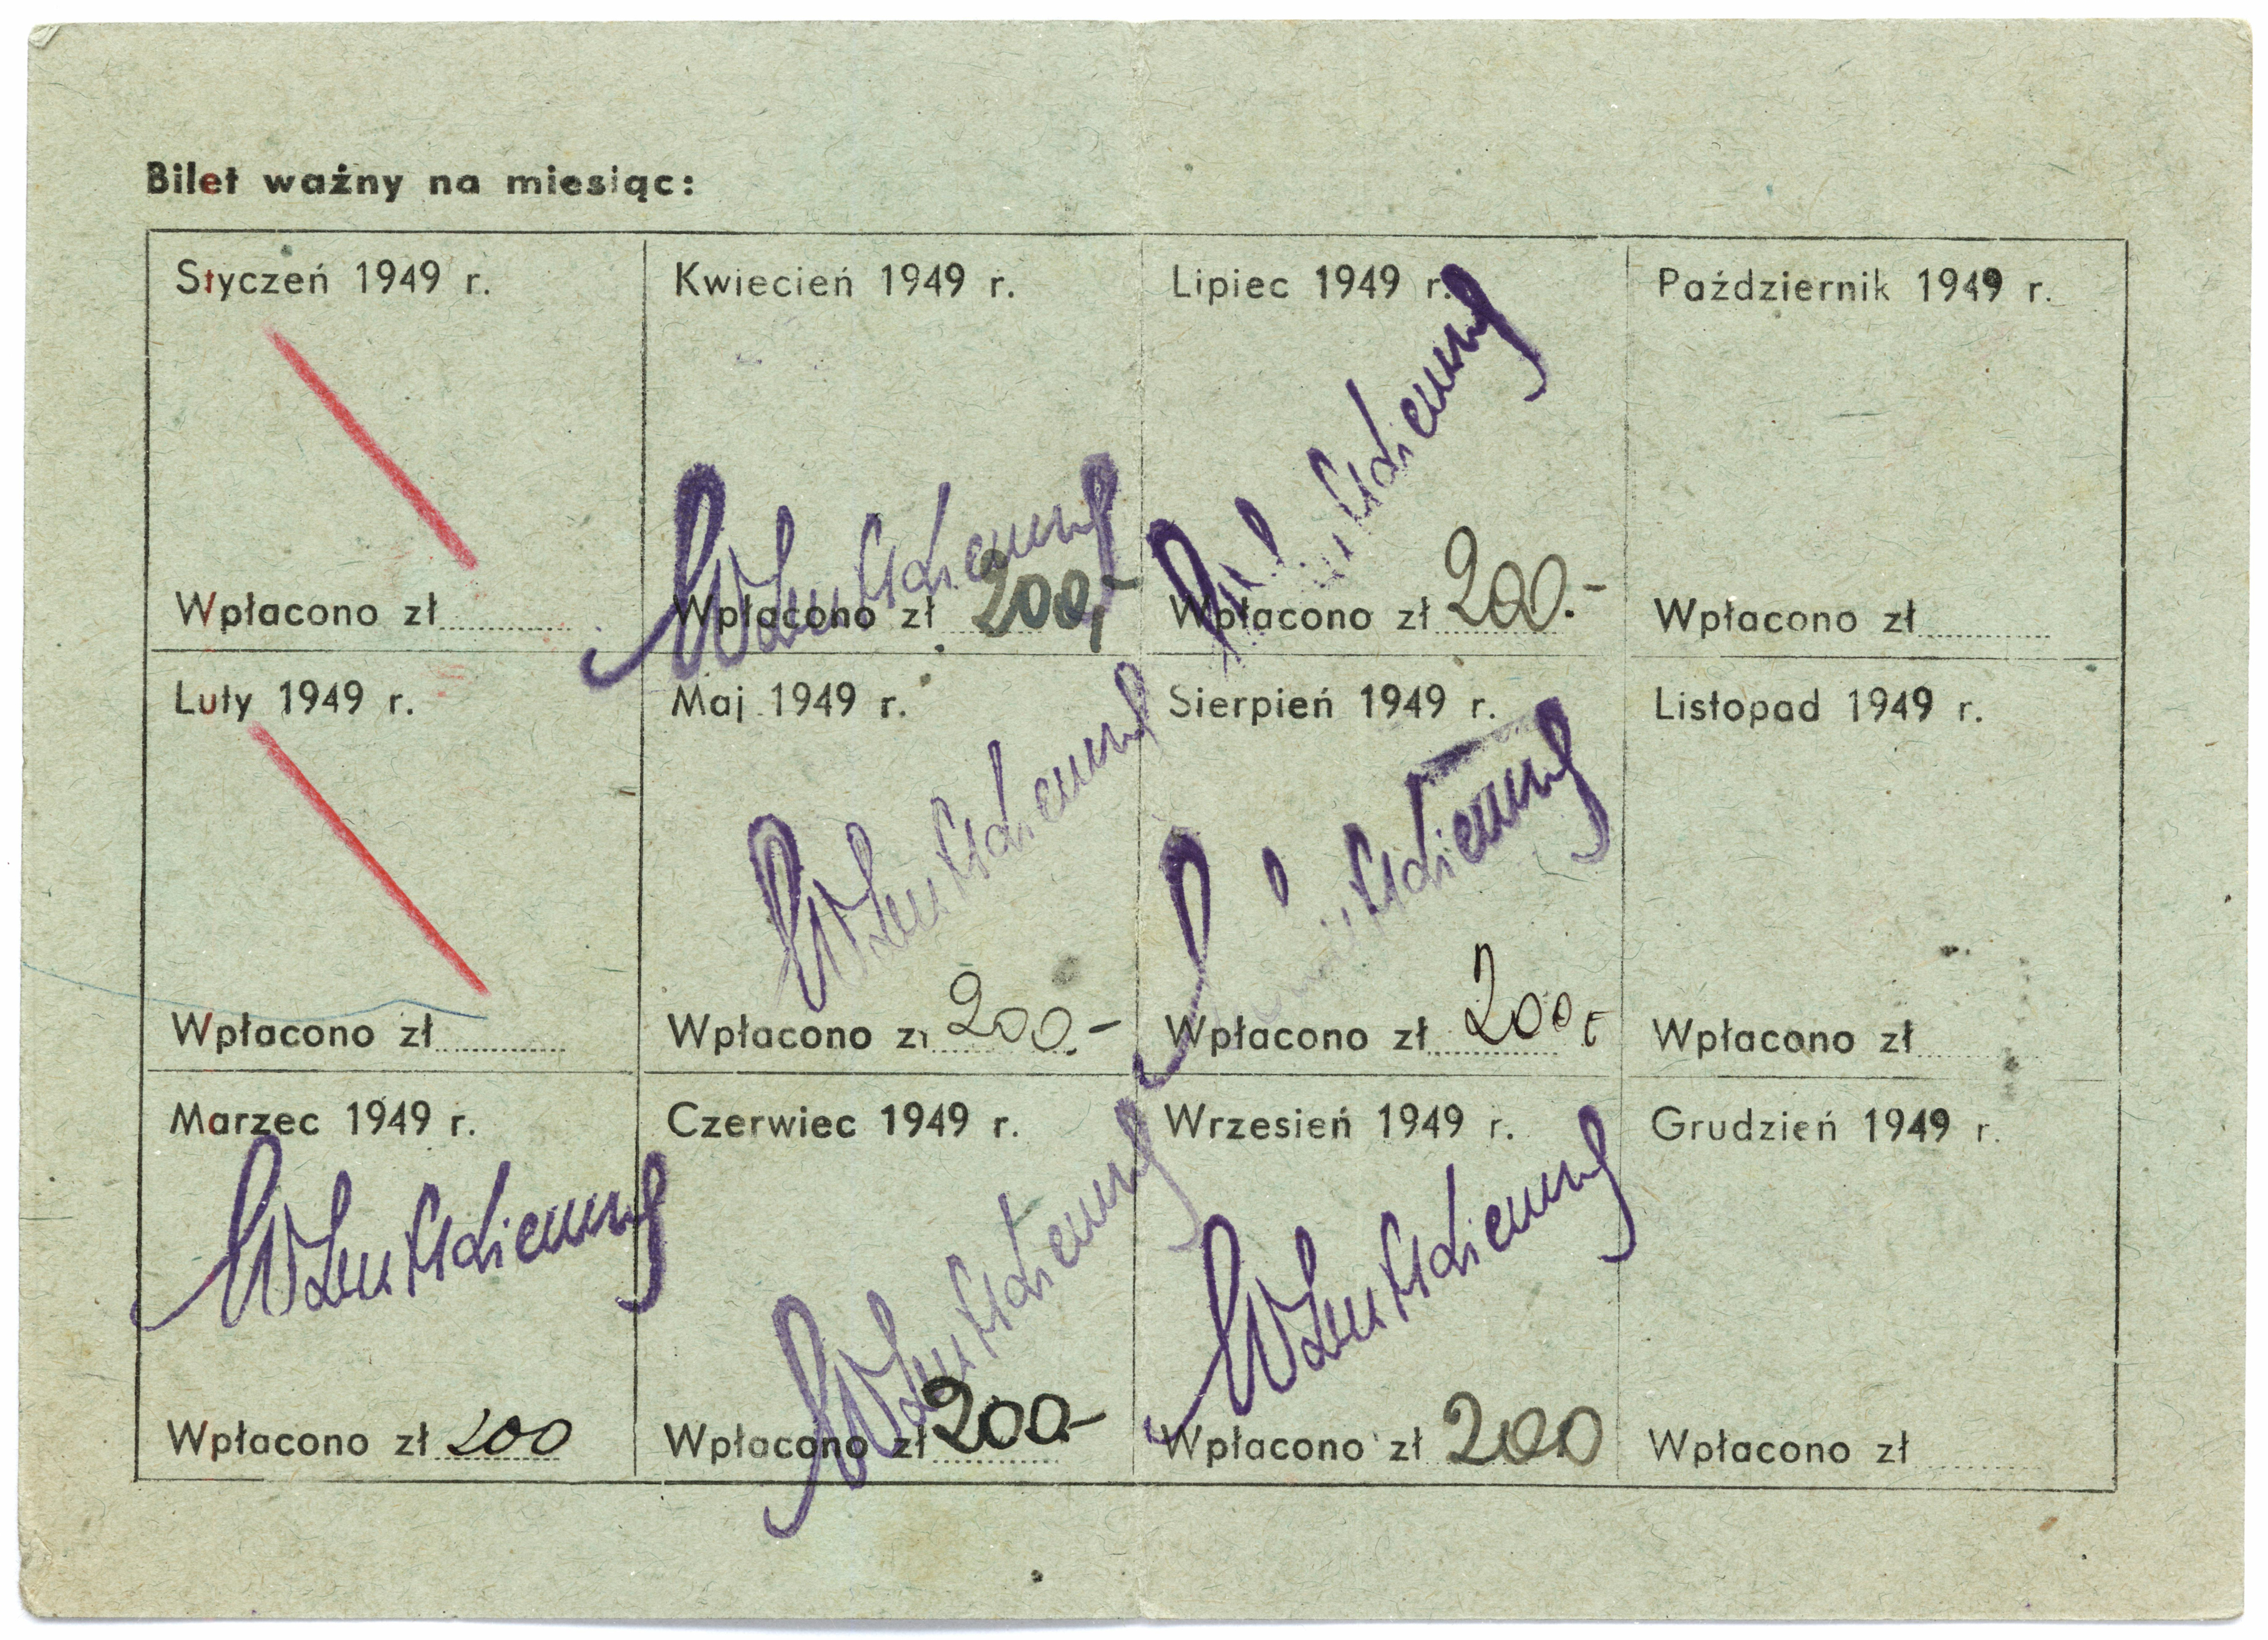 Bilet ważny na miesiąc:
Styczeń 1949 r.
Wpłacono zł
Luty 1949 r.
Wpłacono zł
Marzec 1949 r.
Wpłacono zł 200
Kwiecień 1949 r.
Wpłacono zł 200,-
Maj 1949 r.
Wpłacono zł 200.-
Czerwiec 1949 r.
Wpłacono zł 200-
Lipiec 1949 r.
Wpłacono zł 200.-
Sierpień 1949 r.
Wpłacono zł 200
Wrzesień 1949 r.
Wpłacono zł 200
Październik 1949 r.
Wpłacono zł
Listopad 1949 r.
Wpłacono zł
Grudzień 1949 r.
Wpłacono zł